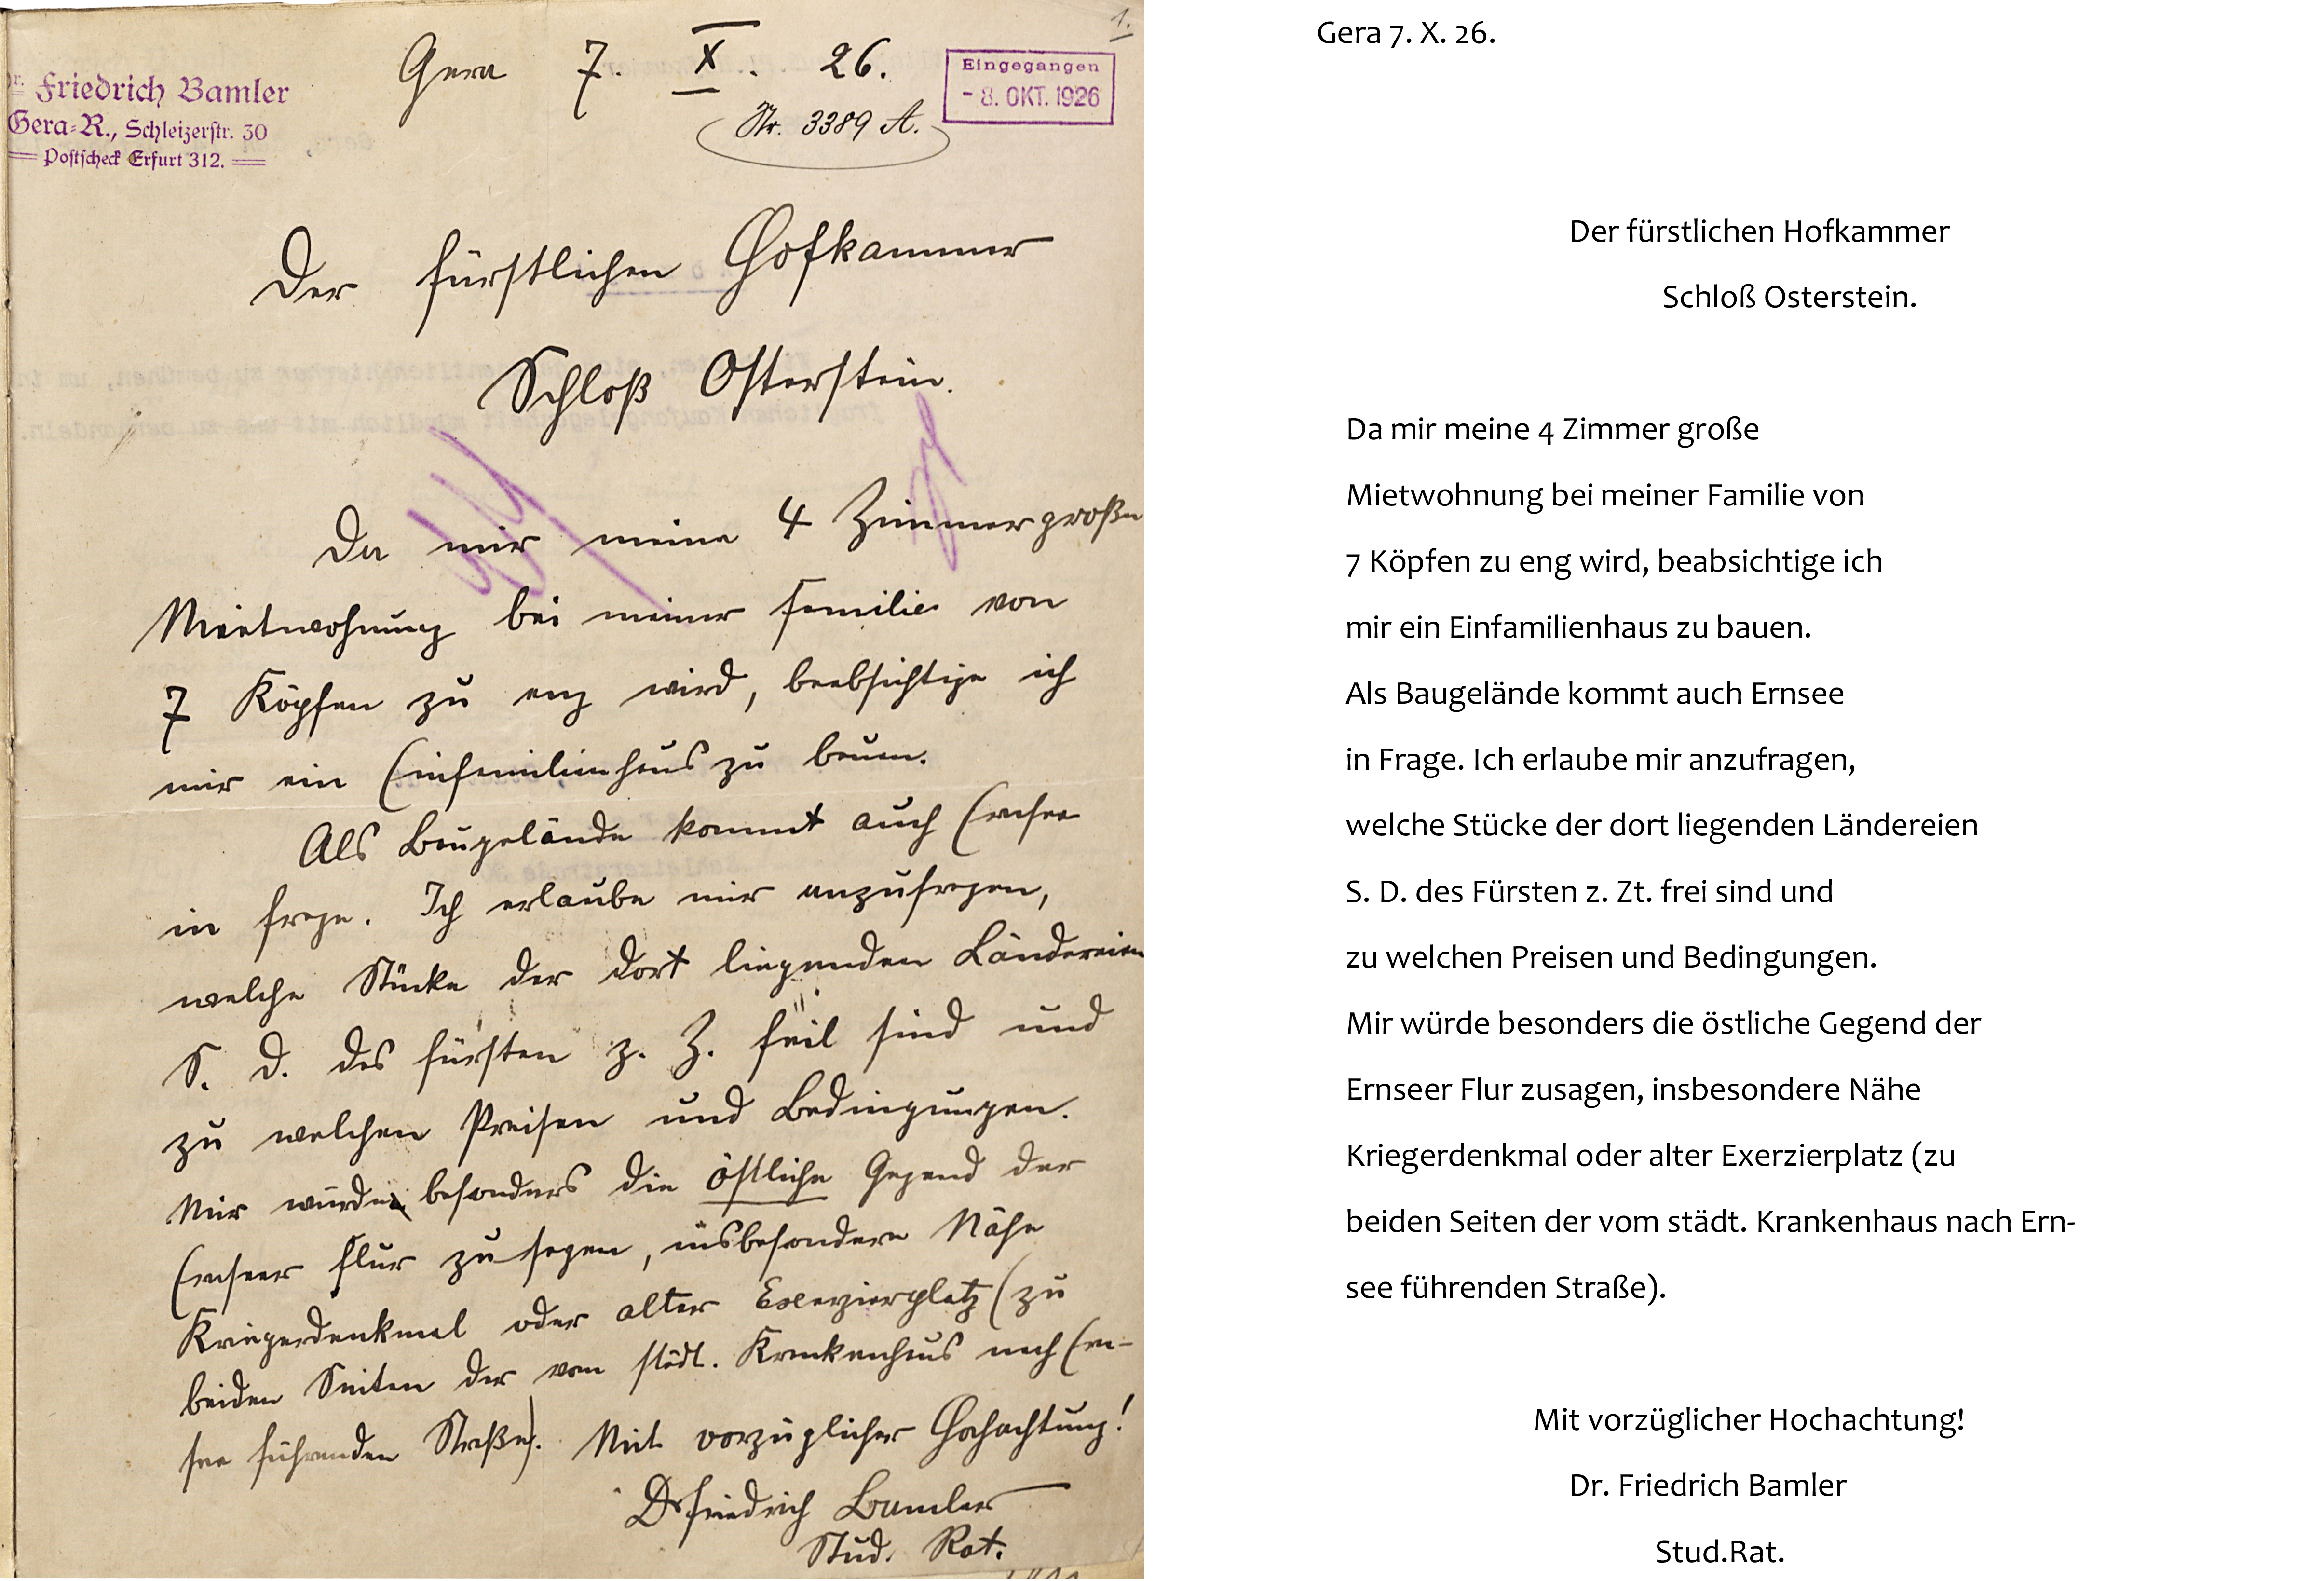 1.
Gera 7. X. 26.
Dr. Friedrich Bamler
Gera-R., Schleizerstr. 30
Postscheck Erfurt 312.
Eingegangen
- 8. OKT. 1926
Nr. 3389 A.
Der fürstlichen Hofkammer
Schloß Osterstein.
Da mir meine 4 Zimmer große
Mietwohnung bei meiner Familie von
7 Köpfen zu eng wird, beabsichtige ich
mir ein Einfamilienhaus zu bauen.
Als Baugelände kommt auch Ernsee
in Frage. Ich erlaube mir anzufragen,
welche Stücke der dort liegenden Ländereien
S. D. des Fürsten z. Z. feil sind und
zu welchen Preisen und Bedingungen.
Mir würde besonders die östliche Gegend der
Ernseer Flur zusagen, insbesondere Nähe
Kriegerdenkmal oder alter Exerzierplatz (zu
beiden Seiten der vom städt. Krankenhaus nach Ern-
see führenden Straße). Mit vorzüglicher Hochachtung!
Dr Friedrich Bamler
Stud. Rat.
Gera 7. X. 26.
Der fürstlichen Hofkammer
Schloß Osterstein.
Da mir meine 4 Zimmer große
Mietwohnung bei meiner Familie von
7 Köpfen zu eng wird, beabsichtige ich
mir ein Einfamilienhaus zu bauen.
Als Baugelände kommt auch Ernsee
in Frage. Ich erlaube mir anzufragen,
welche Stücke der dort liegenden Ländereien
S. D. des Fürsten z. Zt. frei sind und
zu welchen Preisen und Bedingungen.
Mir würde besonders die östliche Gegend der
Ernseer Flur zusagen, insbesondere Nähe
Kriegerdenkmal oder alter Exerzierplatz (zu
beiden Seiten der vom städt. Krankenhaus nach Ern-
see führenden Straße).
Mit vorzüglicher Hochachtung!
Dr. Friedrich Bamler
Stud.Rat.